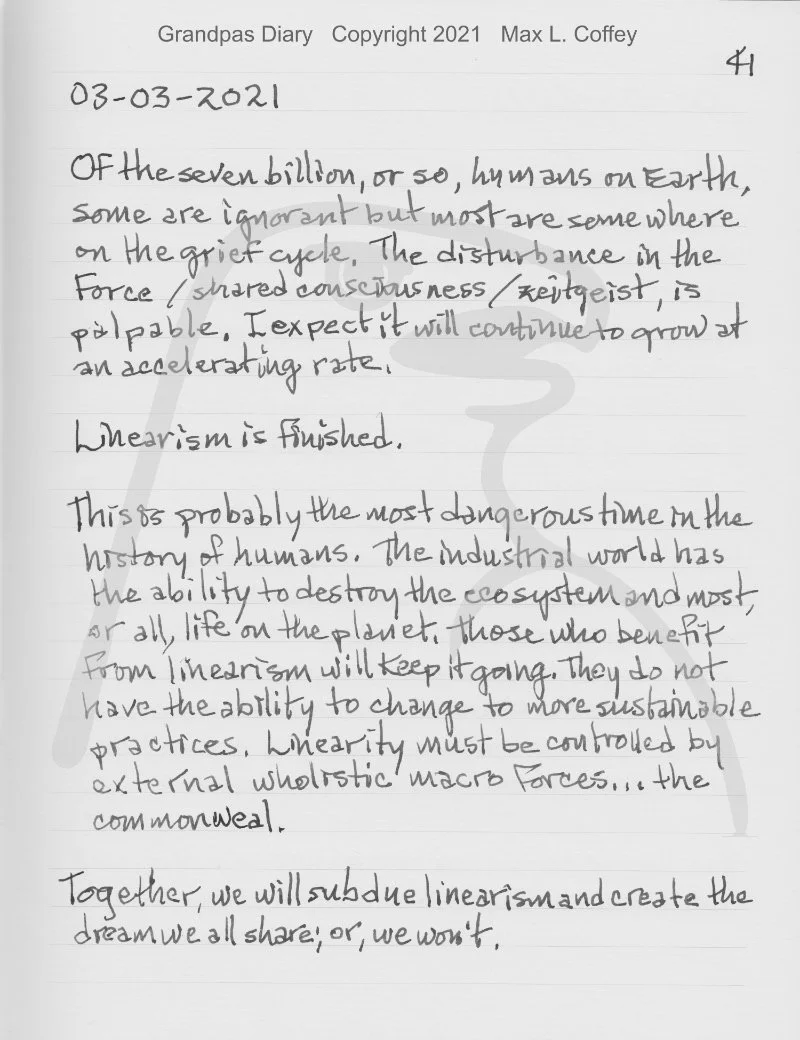 Grandpas Diary Copyright 2021 Max L. Coffey
41
03-03-2021
Of the seven billion, or so, humans on Earth,
some are ignorant but most are somewhere
on the grief cycle. The disturbance in the
Force / shared consciousness / zeitgeist, is
palpable. I expect it will continue to grow at
an accelerating rate.
Linearism is finished.
This is probably the most dangerous time in the
history of humans. The industrial world has
the ability to destroy the ecosystem and most,
or all, life on the planet. Those who benefit
from linearism will keep it going. They do not
have the ability to change to more sustainable
practices. Linearity must be controlled by
external wholistic macro forces... the
commonweal.
Together, we will subdue linearism and create the
dream we all share; or, we won't.